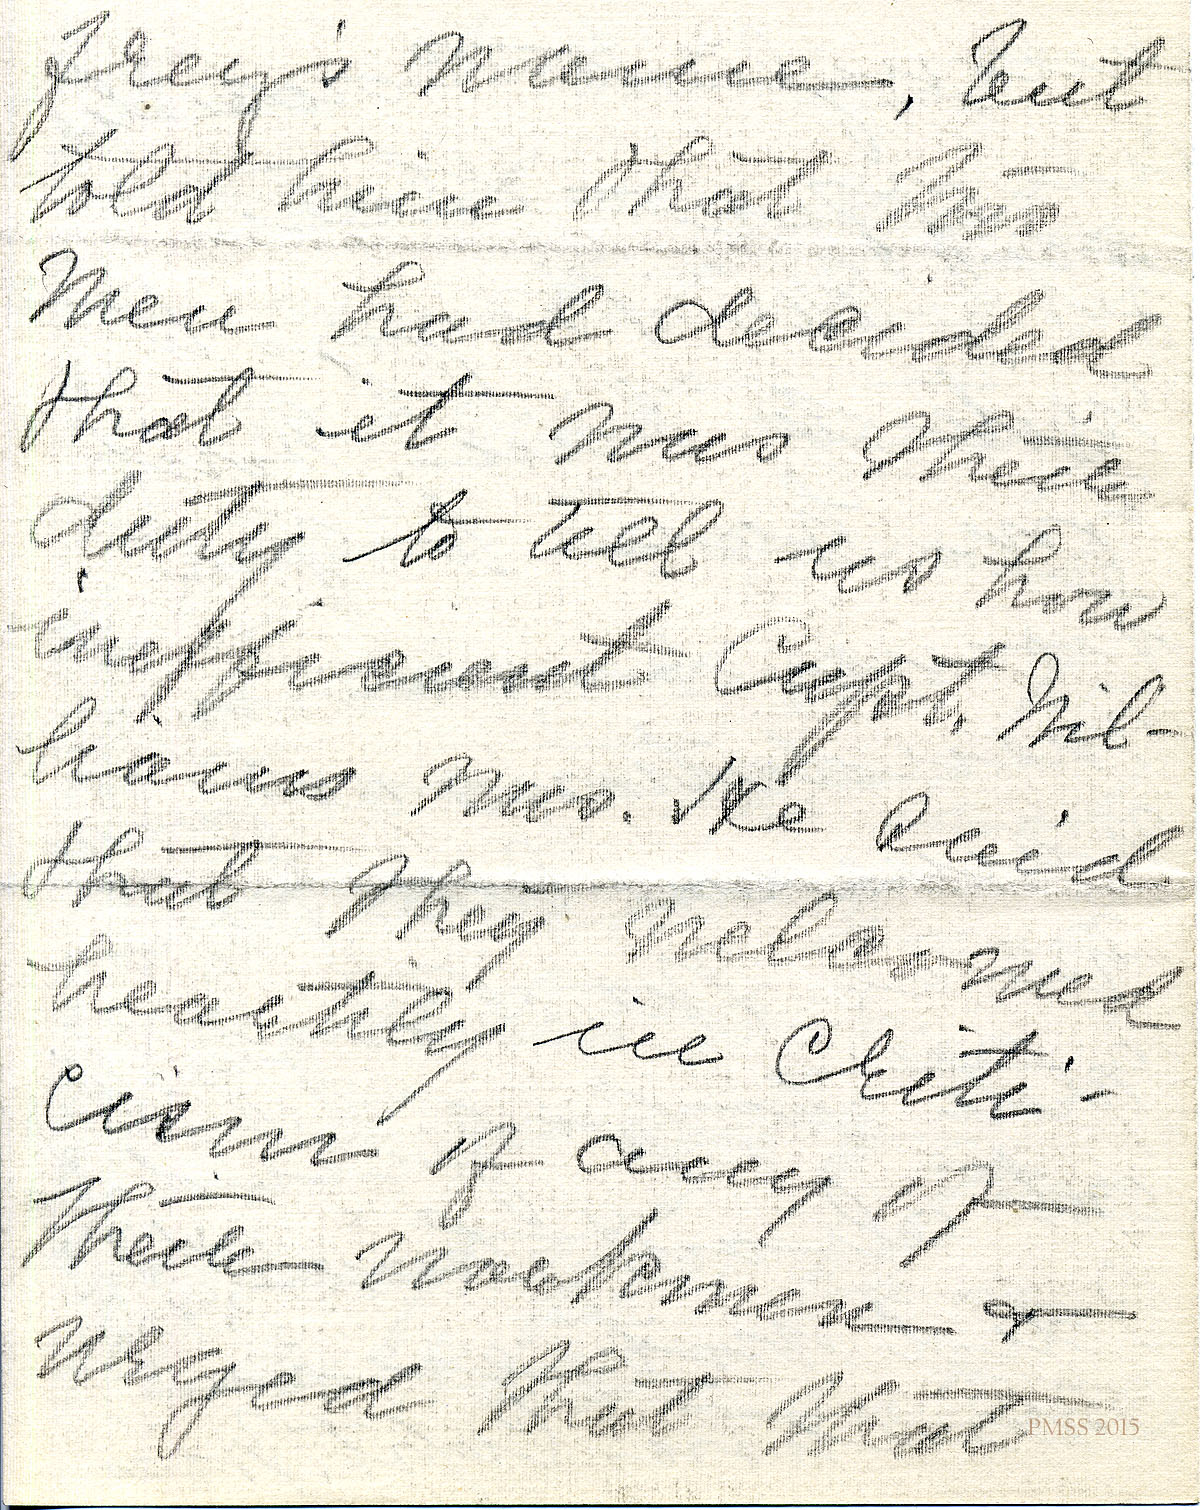 Frey's name, but
told him that two
men had decided
that it was their
duty to tell us how
inefficient Capt. Wil-
liams was. He said
that they welcomed
heartily in criti-
cism of any of
their workmen &
urged that that
PMSS 2015